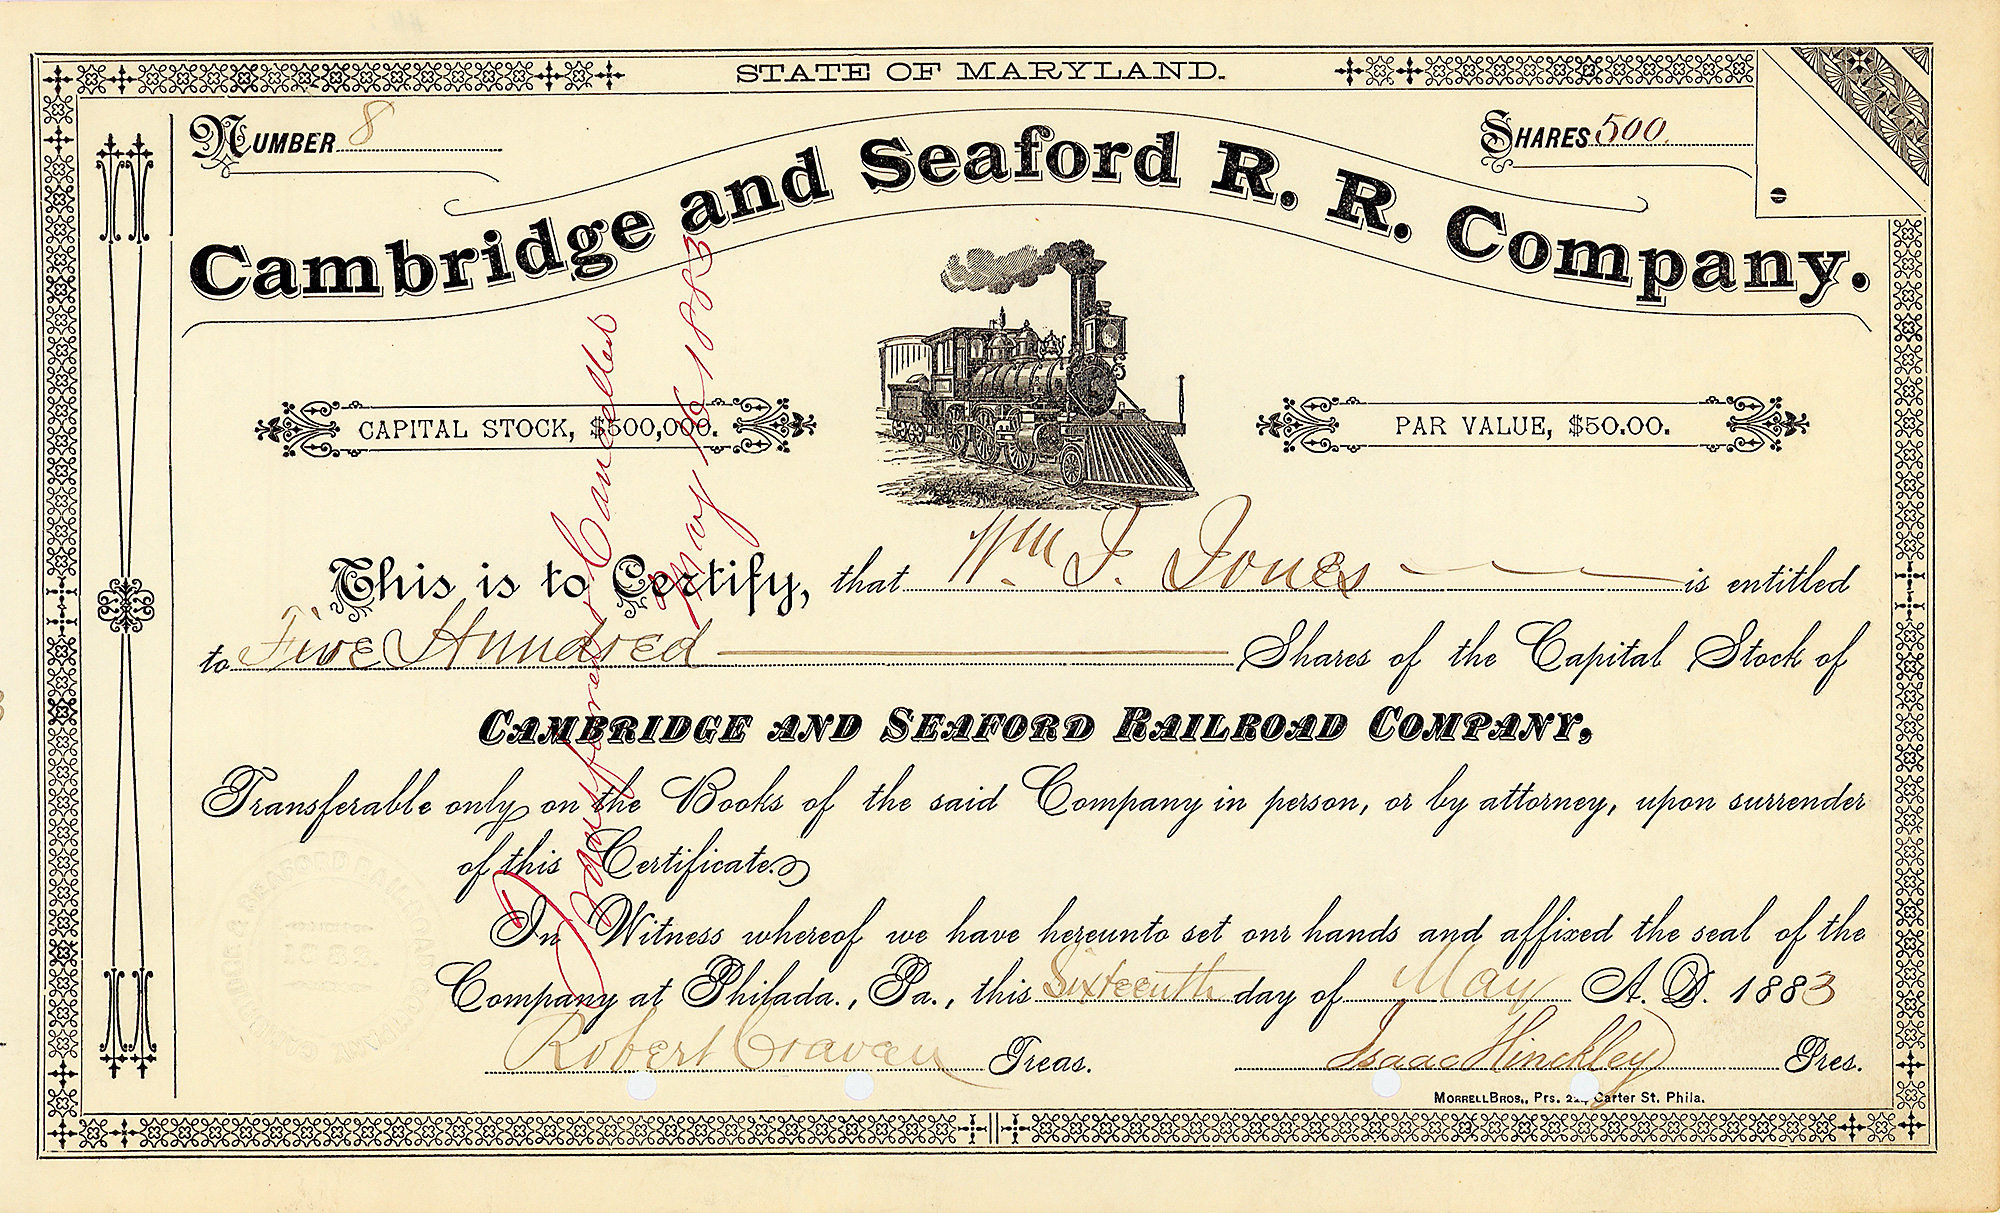 STATE OF MARYLAND.
NUMBER 8
SHARES 500.
Cambridge and Seaford R. R. Company.
CAPITAL STOCK, $500,000.
PAR VALUE, $50.00.
This is to Certify, that Wm J. Jones is entitled
to Five Hundred Shares of the Capital Stock of
CAMBRIDGE AND SEAFORD RAILROAD COMPANY,
Transferable only on the Books of the said Company in person, or by attorney, upon surrender
of this Certificate.
In Witness whereof we have hereunto set our hands and affixed the seal of the
Company at Philada., Pa., this Sixteenth day of May A. D. 1883
Robert Craven Treas.
Isaac Hinckley Pres.
MORRELL BROS., Prs. 224 Carter St. Phila.
Transferred & Cancelled
May 16 1883
SEAFORD RAILROAD COMPANY
1883.